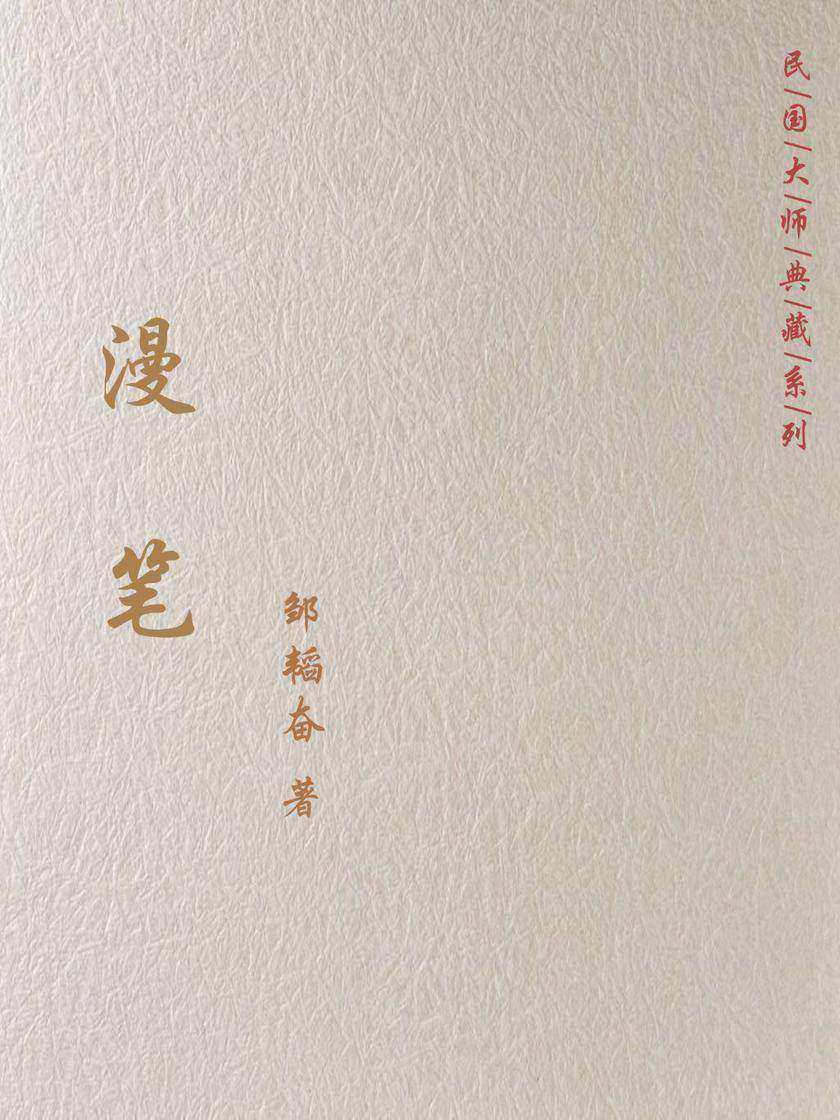 民/国/大/师/典/藏/系/列
漫笔
邹韬奋 著